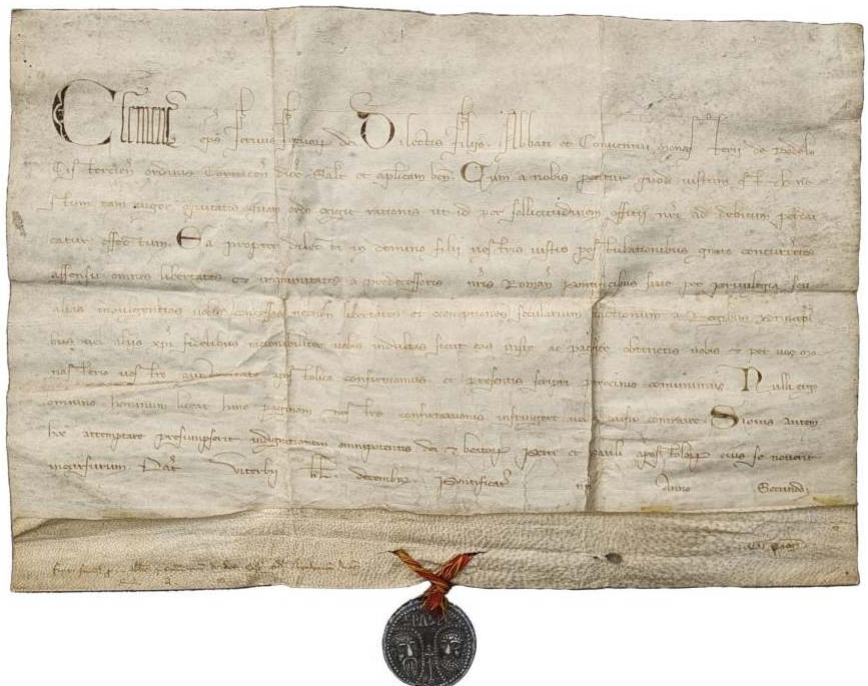 Clemens ep̄s servus servor̄ dei Dilectis filijs Abbati et Conventui monasterii de
Cistercien̄ ordinis dioc̄ Salt̄ et ap̄licam ben̄. Cum a nobis petitur quod iustum est et hone
stum tam vigor equitatis quam ordo exigit rationis ut id per sollicitudinem officii nr̄i ad debitum perdu
catur effectum. Ea propter dilecti in domino filii vestris iustis postulationibus grato concurrentes
assensu omnes libertates et immunitates a predecessoribus nr̄is Roman̄ Pontificibus sive per privilegia seu
alias indulgentias vobis concessas necnon libertates et exemptiones secularium exactionum a Regibus et Principi
bus vel alijs xp̄i fidelibus rationabiliter vobis indultas sicut eas iuste ac pacifice obtinetis vobis et per vos
monasterio vestro auctoritate apostolica confirmamus et presentis scripti patrocinio communimus. Nulli ergo
omnino hominum liceat hanc paginam nostre confirmationis infringere vel ei ausu contraire. Siquis autem
hoc attemptare presumpserit indignationem omnipotentis dei et beator̄ Petri et Pauli apostolor̄ eius se noverit
incursurum. Dat̄ Viterbii kl̄ decembr̄ Pontificat̄ nr̄i Anno Secundo